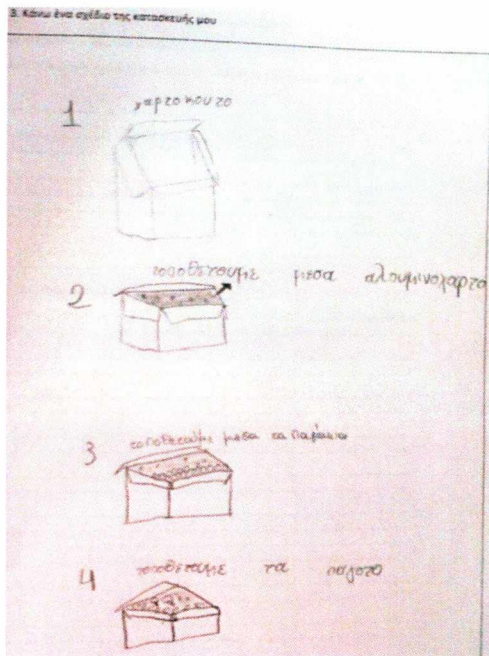 3. Κάνω ένα σχέδιο της κατασκευής μου
1 χαρτοκουτο
2 τοποθετουμε μεσα αλουμινοχαρτο
3 τοποθετουμε μεσα τα παγακια
4 τοποθετουμε τα παγοτα